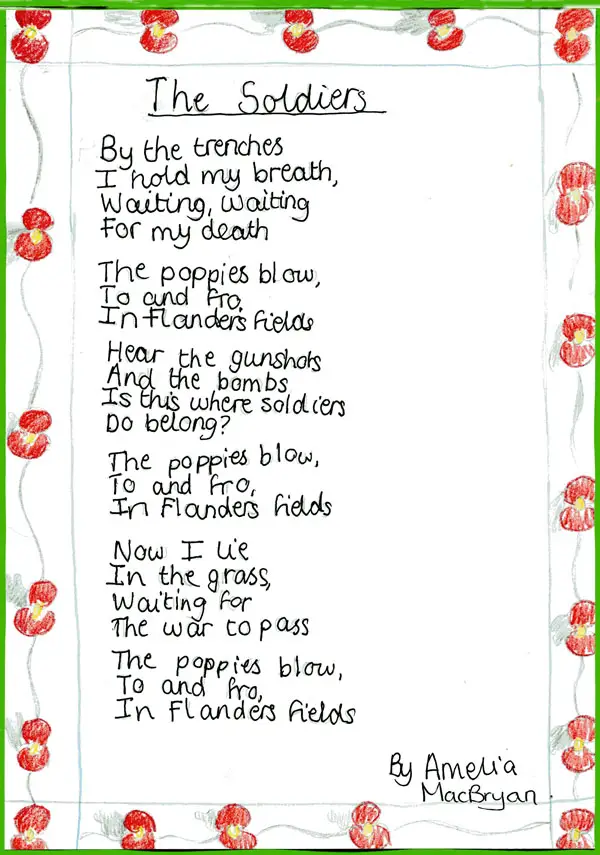 The Soldiers
By the trenches
I hold my breath,
Waiting, waiting
For my death
The poppies blow,
To and fro,
In Flanders fields
Hear the gunshots
And the bombs
Is this where soldiers
Do belong?
The poppies blow,
To and fro,
In Flanders fields
Now I lie
In the grass,
Waiting for
The war to pass
The poppies blow,
To and fro,
In Flanders fields
By Amelia
MacBryan.